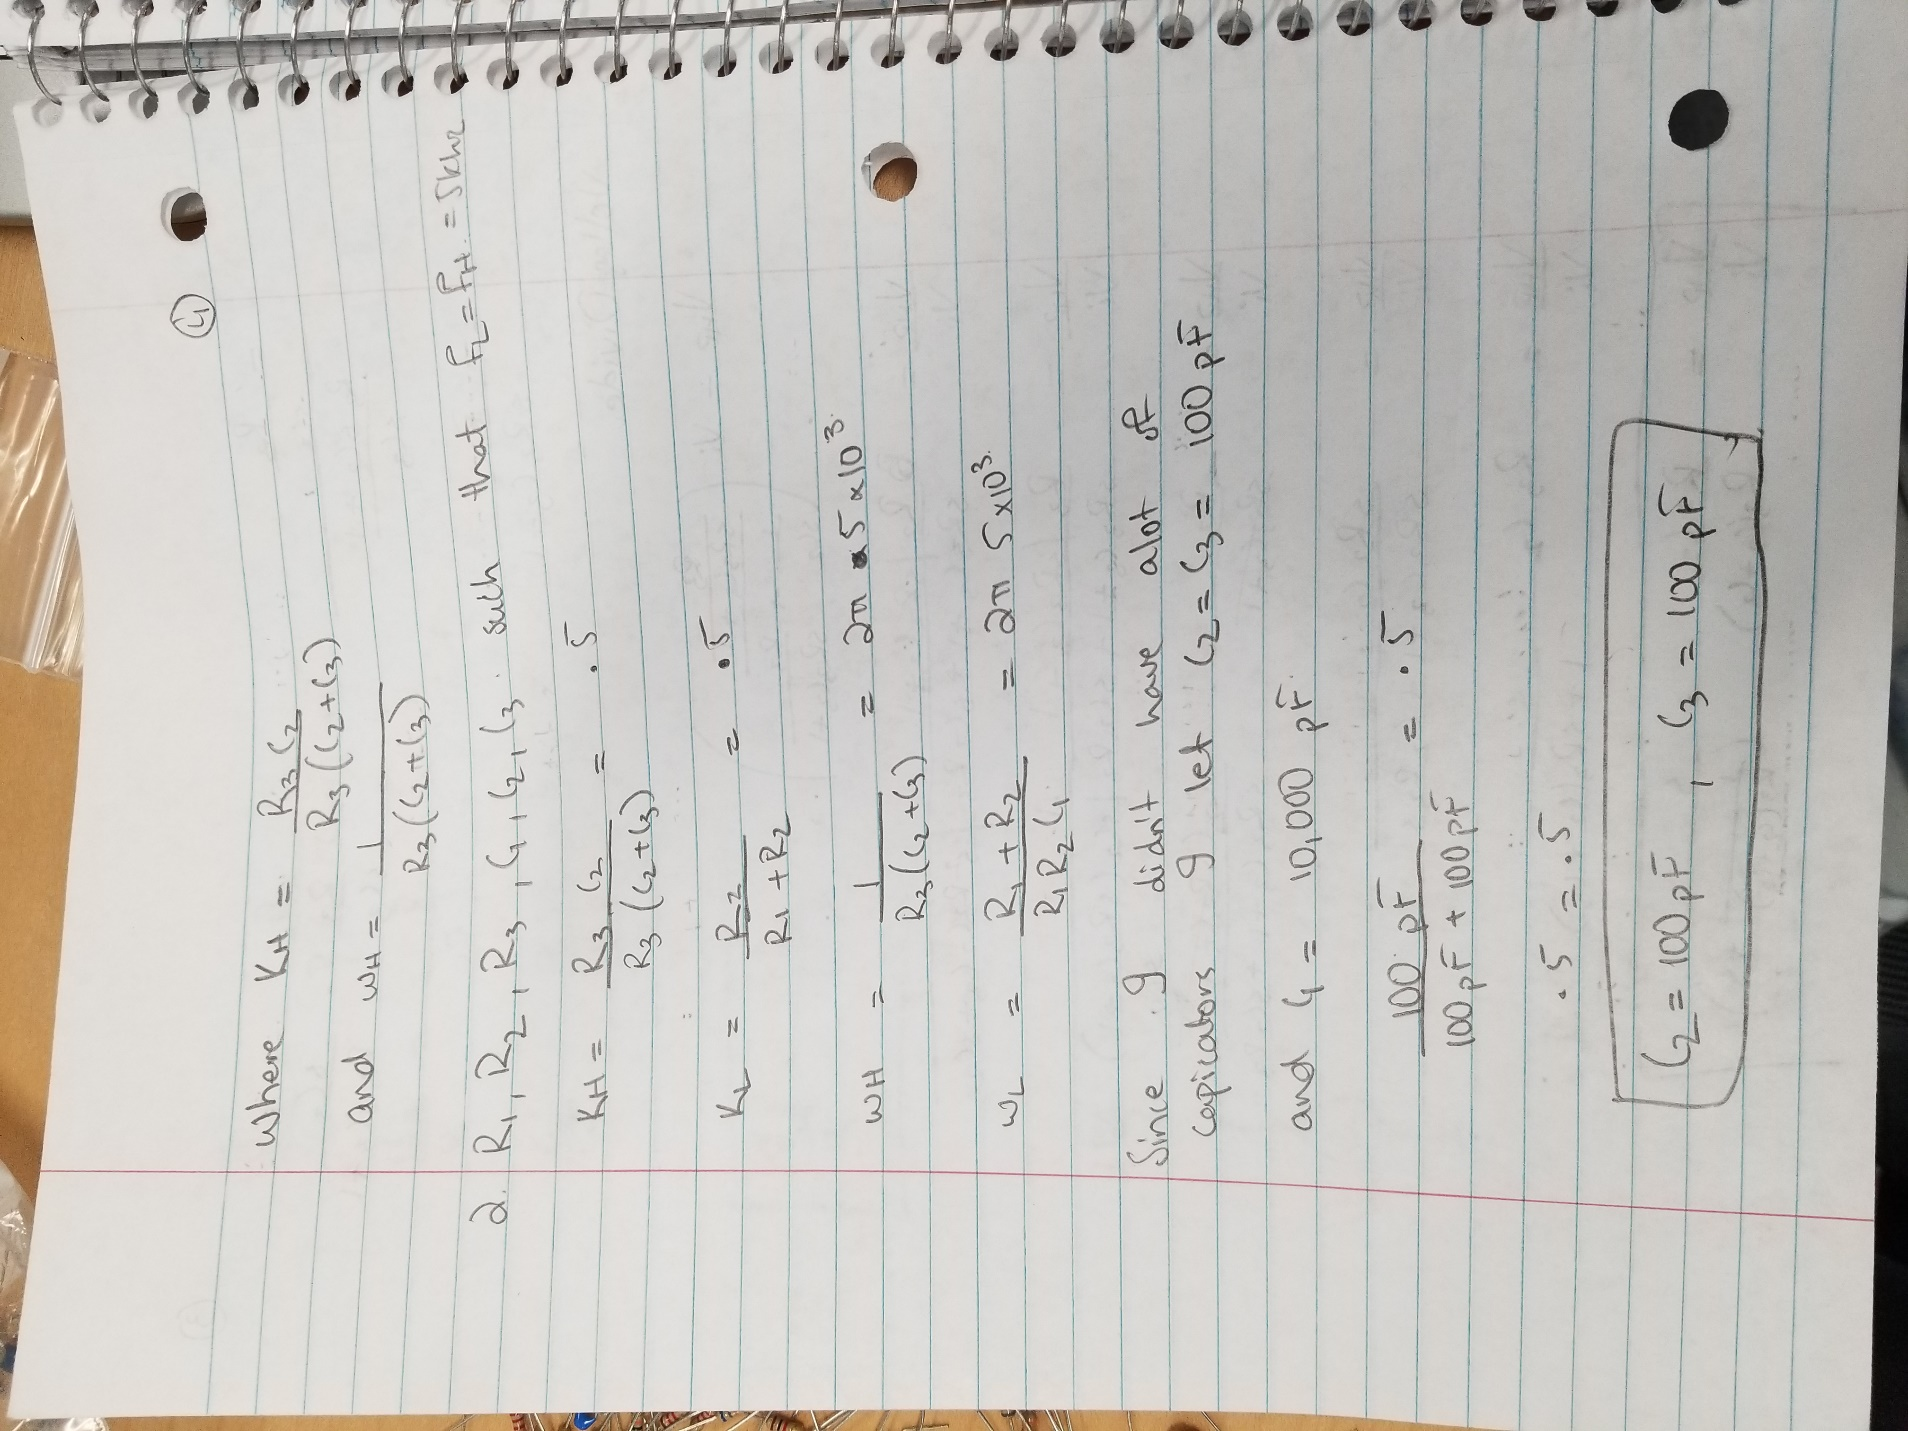 ④
Where KH = R3 C2 / R3 (C2 + C3)
and wH = 1 / R3 (C2 + C3)
2. R1, R2, R3, C1, C2, C3 such that FL = FH = 5khz
KH = R3 C2 / R3 (C2 + C3) = .5
KL = R2 / R1 + R2 = .5
wH = 1 / R3 (C2 + C3) = 2π 5 x 10³
wL = R1 + R2 / R1 R2 C1 = 2π 5 x 10³
Since I didn't have alot of
capicators I let C2 = C3 = 100 pF
and C1 = 10,000 pF
100 pF / 100 pF + 100 pF = .5
.5 = .5
C2 = 100 pF, C3 = 100 pF